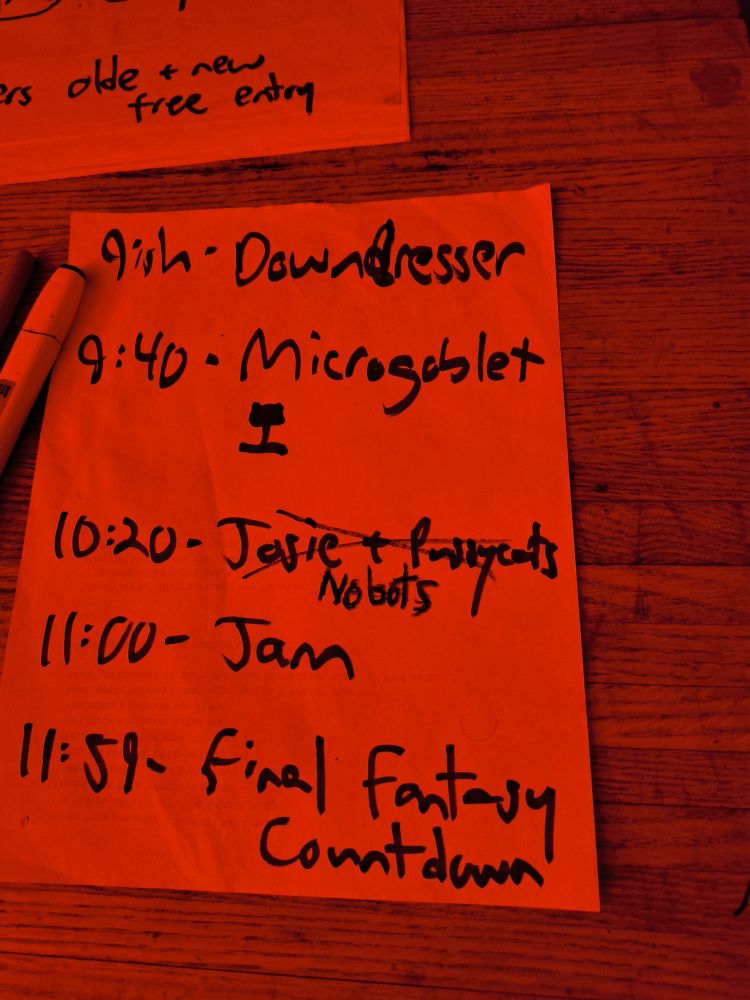 olde + new
free entry
9ish - Downdresser
9:40 - Microgoblet
10:20 - Josie + Pussycats
Nobots
11:00 - Jam
11:59 - Final Fantasy
Countdown